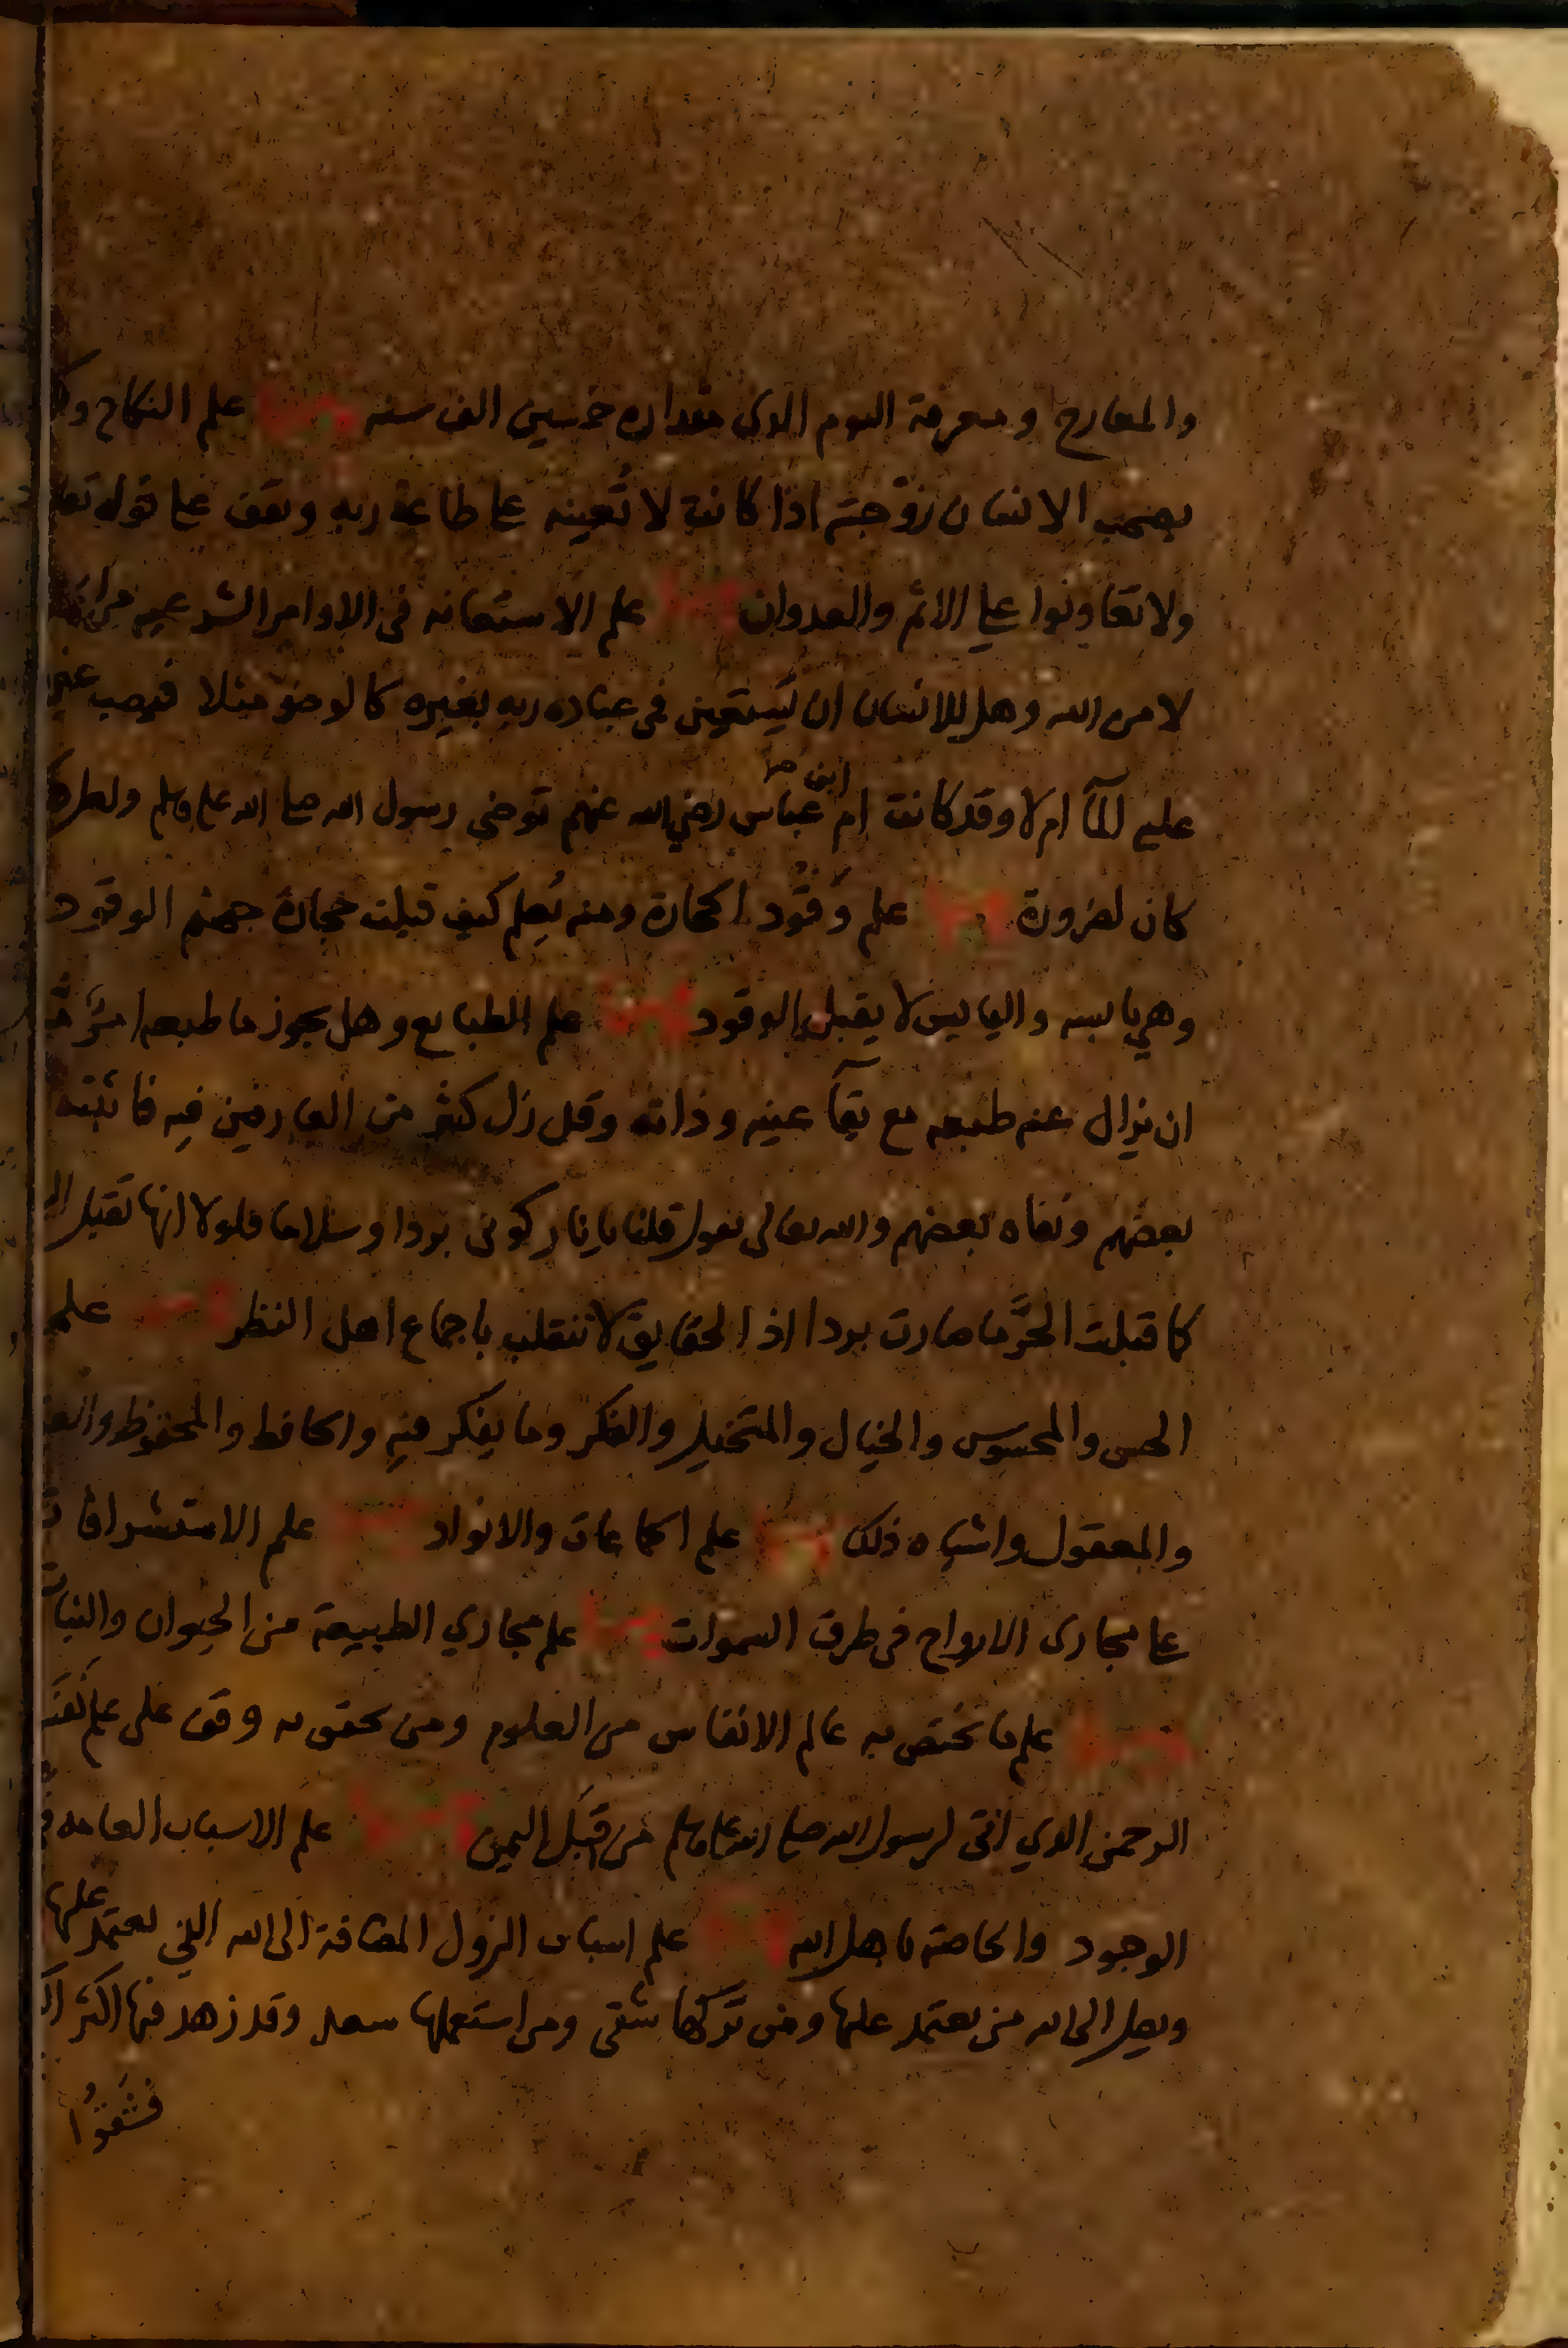 والمعارج ومعرفة اليوم الذي مقداره خمسين الف سنه ومنها علم النكاح
يصحب الانسان زوجته اذا كانت لا تعينه على طاعة ربه ويقف على قوله
ولا تعاونوا على الاثم والعدوان ومنها علم الاستعانه في الاوامر الشرعيه
لامر الله وهل للانسان ان يستعين في عباده ربه بغيره كالوضو مثلا فيصب
عليه المآ ام لا وقد كانت ام ابن عباس رضي الله عنهم توضي رسول الله صلى الله عليه وسلم
كان لضرورة ومنها علم وقود الحجارة ومنه يعلم كيف قبلت حجارة جهنم الوقود
وهي يابسه واليابس لا يقبل الوقود ومنها علم الطبايع وهل يجوز ما طبعه
ان يزال عنه طبعه مع بقآ عينه وذاته وقل زل كثير من العارفين فيه فاثبته
بعضهم ونفاه بعضهم والله تعالى يقول قلنا يا نار كوني بردا وسلاما فلولا انها تقبل
كما قبلت الحر ما صارت بردا اذ الحقايق لا تنقلب باجماع اهل النظر ومنها علم
الحس والمحسوس والخيال والمتخيل والفكر وما يفكر فيه والحافظ والمحفوظ
والمعقول واشباه ذلك ومنها علم الجاعات والانواد ومنها علم الاستشرافات
على مجاري الارواح في طرق السموات ومنها علم مجاري الطبيعة من الحيوان والنبات
ومنها علم ما تختص به عالم الانفاس من العلوم ومن تحقق به وقف على علم نفس
الرحمن الذي اتى لرسول الله صلى الله عليه وسلم من قبل اليمن ومنها علم الاسباب العامه
الوجود والخاصه باهل الله ومنها علم اسباب النزول المضافة الى الله التي يعتمد عليها
ويصل الى الله من يعتمد عليها ومن تركها شقي ومن استعملها سعد وقد زهد فيها اكثر
فشقوا